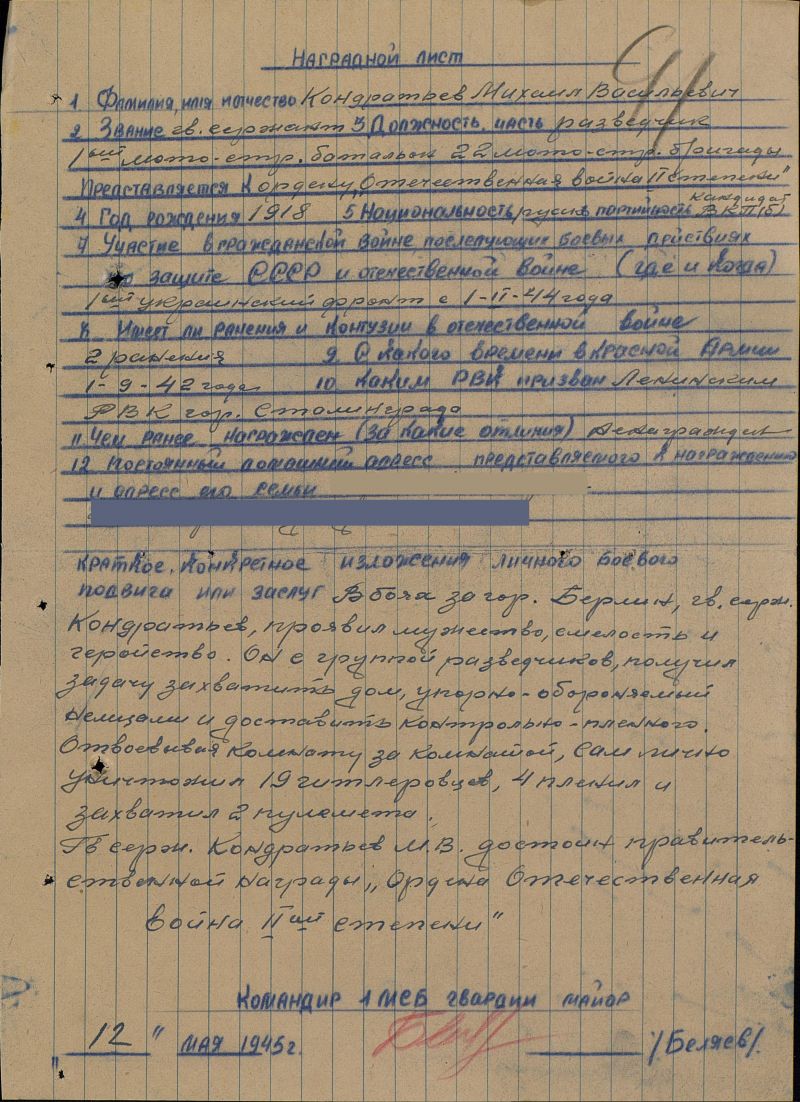 Наградной лист
91
1 Фамилия, имя и отчество Кондратьев Михаил Васильевич
2 Звание гв. сержант 3 Должность, часть разведчик
1ый мото-стр. батальон 22 мото-стр. бригады
Представляется к ордену „Отечественная война II степени"
4 Год рождения 1918 5 Национальность русск партийность кандидат ВКП(б)
7 Участие в гражданской войне последующих боевых действиях
по защите СССР и отечественной войне (где и когда)
1ый украинский фронт с 1-II-44 года
8 Имеет ли ранения и контузии в отечественной войне
2 ранения 9 С какого времени в Красной Армии
1-9-42 года 10 каким РВК призван Ленинским
РВК гор. Сталинграда
11 Чем ранее награжден (за какие отличия) ненагражден
12 Постоянный домашний адресс представляемого к награждению
и адресс его семьи
краткое, конкретное изложения личного боевого
подвига или заслуг В боях за гор. Берлин, гв. серж.
Кондратьев, проявил мужество, смелость и
геройство. Он с группой разведчиков, получил
задачу захватить дом, упорно-обороняемый
немцами и доставить контрольно-пленного.
Отвоевывая комнату за комнатой, сам лично
уничтожил 19 гитлеровцев, 4 пленил и
захватил 2 пулемета.
Гв серж. Кондратьев М.В. достоин правитель-
ственной награды „Ордена Отечественная
война IIой степени"
Командир 1 МСБ гвардии майор
12 " мая 1945г. /Беляев/.